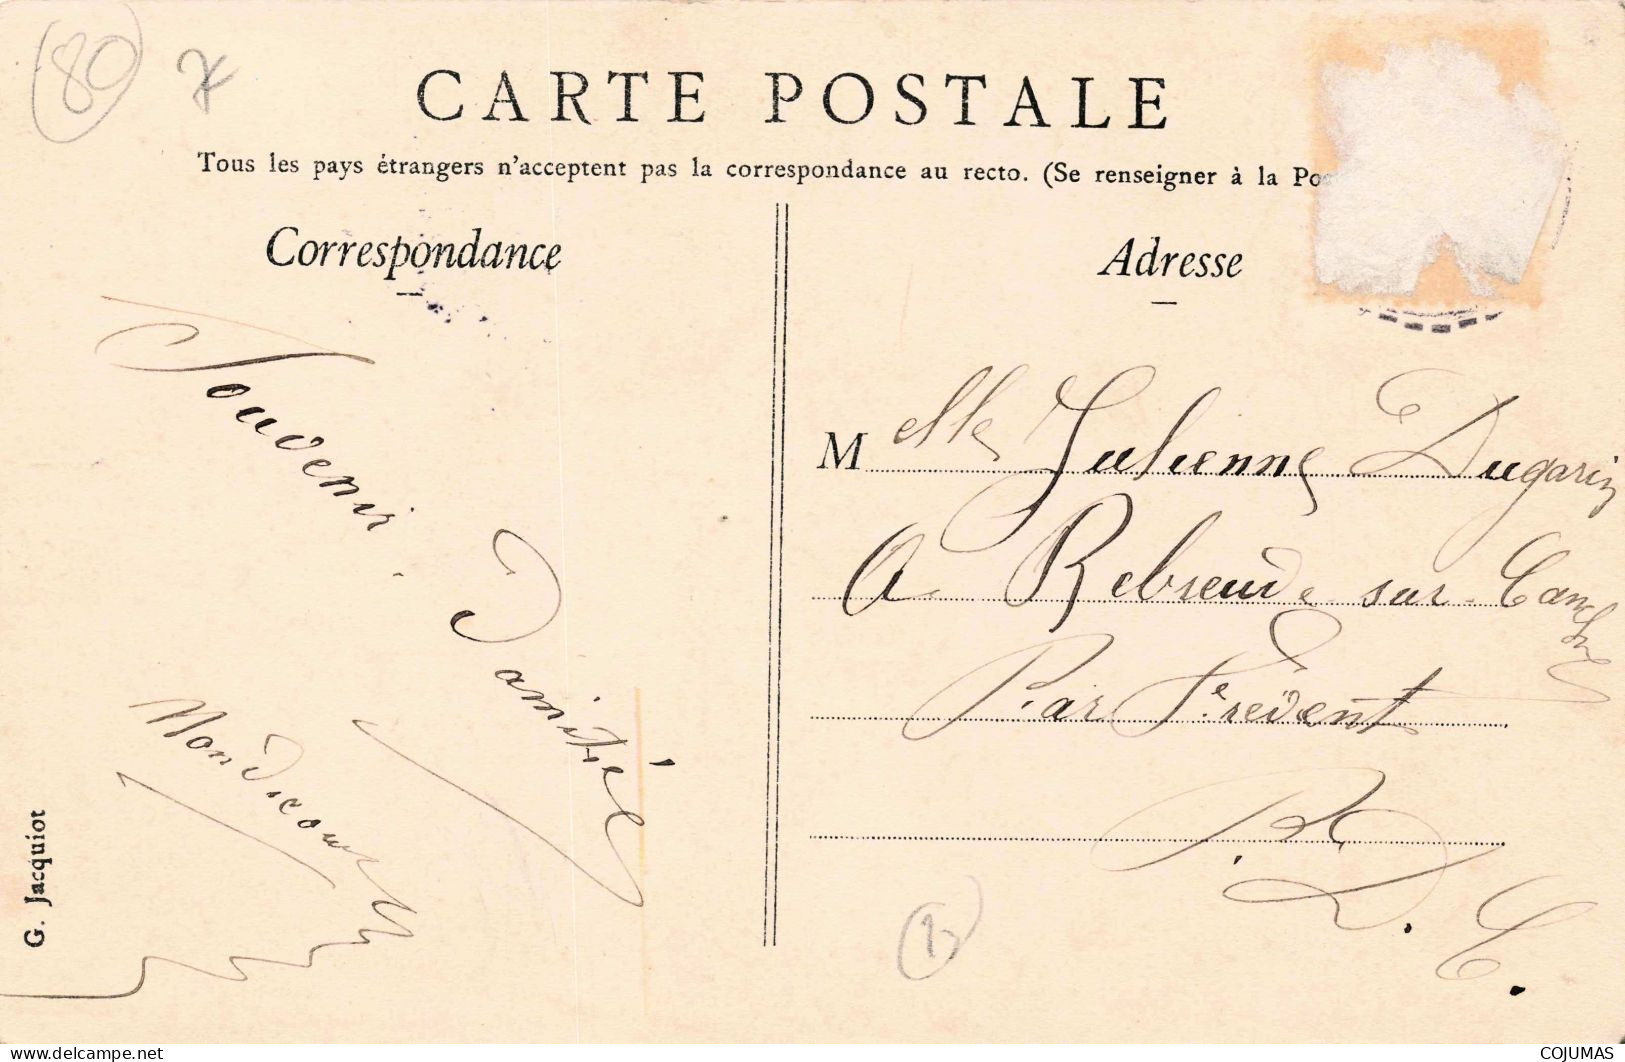 80
CARTE POSTALE
Tous les pays étrangers n'acceptent pas la correspondance au recto. (Se renseigner à la Po
Correspondance
Souvenir
D'amitié
Mondicourt
G. Jacquiot
Adresse
Melle Julienne Dugarin
A Rebreuve sur Canche
Par Frévent
P. D. C.
1
www.delcampe.net
COJUMAS